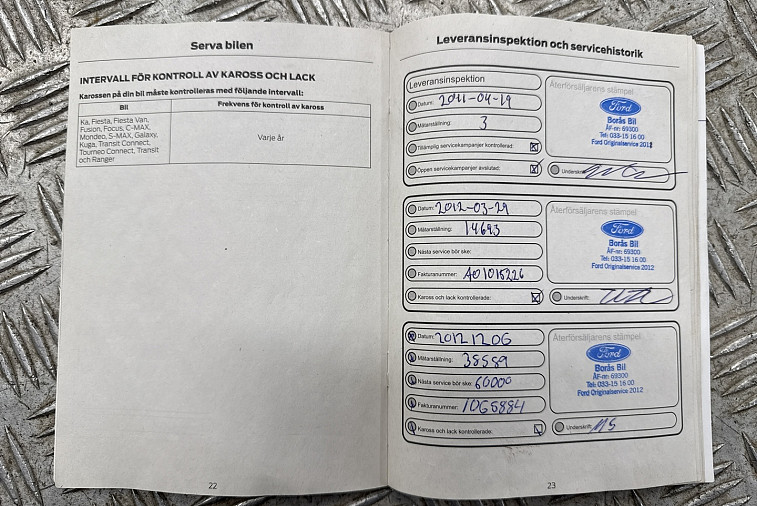 Serva bilen
INTERVALL FÖR KONTROLL AV KAROSS OCH LACK
Karossen på din bil måste kontrolleras med följande intervall:
Bil
Frekvens för kontroll av kaross
Ka, Fiesta, Fiesta Van,
Fusion, Focus, C-MAX,
Mondeo, S-MAX, Galaxy,
Kuga, Transit Connect,
Tourneo Connect, Transit
och Ranger
Varje år
22
Leveransinspektion och servicehistorik
Leveransinspektion
Datum: 2011-04-19
Mätarställning: 3
Tillämplig servicekampanjer kontrollerad:
Öppen servicekampanjer avslutad:
Återförsäljarens stämpel
Ford
Borås Bil
ÅF-nr: 69300
Tel: 033-15 16 00
Ford Originalservice 2012
Underskrift:
Datum: 2012-03-29
Mätarställning: 14693
Nästa service bör ske:
Fakturanummer: A01015226
Kaross och lack kontrollerade:
Återförsäljarens stämpel
Ford
Borås Bil
ÅF-nr: 69300
Tel: 033-15 16 00
Ford Originalservice 2012
Underskrift:
Datum: 20121206
Mätarställning: 38589
Nästa service bör ske: 60000
Fakturanummer: 1065884
Kaross och lack kontrollerade:
Återförsäljarens stämpel
Ford
Borås Bil
ÅF-nr: 69300
Tel: 033-15 16 00
Ford Originalservice 2012
Underskrift:
23